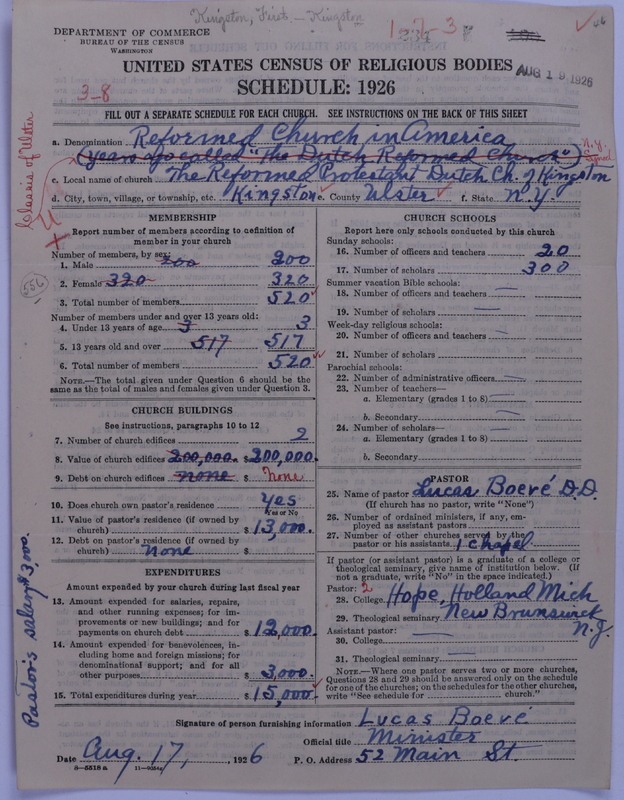 "Kingston, First. — Kingston
DEPARTMENT OF COMMERCE
BUREAU OF THE CENSUS
WASHINGTON
1-2-3
AUG 19 1926
UNITED STATES CENSUS OF RELIGIOUS BODIES
SCHEDULE: 1926
3-8
FILL OUT A SEPARATE SCHEDULE FOR EACH CHURCH. SEE INSTRUCTIONS ON THE BACK OF THIS SHEET
a. Denomination Reformed Church in America
(years ago called "The Dutch Reformed Church")
N.Y.
c. Local name of church The Reformed Protestant Dutch Ch. of Kingston
d. City, town, village, or township, etc. Kingston e. County Ulster f. State N.Y.
Classis of Ulster
556
MEMBERSHIP
Report number of members according to definition of
member in your church
Number of members, by sex:
1. Male 200 200
2. Female 320 320
3. Total number of members 520
Number of members under and over 13 years old:
4. Under 13 years of age 3 3
5. 13 years old and over 517 517
6. Total number of members 520
NOTE.—The total given under Question 6 should be
same as the total of males and females given under Question 3.
CHURCH BUILDINGS
See instructions, paragraphs 10 to 12
7. Number of church edifices 2
8. Value of church edifices 200,000. $200,000.
9. Debt on church edifices none $ None
10. Does church own pastor's residence Yes
Yes or No
11. Value of pastor's residence (if owned by
church) $13,000.
12. Debt on pastor's residence (if owned by
church) None $
EXPENDITURES
Amount expended by your church during last fiscal year
13. Amount expended for salaries, repairs,
and other running expenses; for im-
provements or new buildings; and for
payments on church debt $12,000.
14. Amount expended for benevolences, in-
cluding home and foreign missions; for
denominational support; and for all
other purposes $3,000.
15. Total expenditures during year $15,000.
Pastor's salary $3,000.
CHURCH SCHOOLS
Report here only schools conducted by this church
Sunday schools:
16. Number of officers and teachers 20
17. Number of scholars 300
Summer vacation Bible schools:
18. Number of officers and teachers —
19. Number of scholars —
Week-day religious schools:
20. Number of officers and teachers —
21. Number of scholars —
Parochial schools:
22. Number of administrative officers —
23. Number of teachers—
a. Elementary (grades 1 to 8) —
b. Secondary —
24. Number of scholars—
a. Elementary (grades 1 to 8) —
b. Secondary
PASTOR
25. Name of pastor Lucas Boevé D.D.
(If church has no pastor, write "None")
26. Number of ordained ministers, if any, em-
ployed as assistant pastors
27. Number of other churches served by the
pastor or his assistants 1 chapel
If pastor (or assistant pastor) is a graduate of a college or
theological seminary, give name of institution below. (If
not a graduate, write "No" in the space indicated.)
Pastor: 2
28. College Hope, Holland Mich
29. Theological seminary New Brunswick
N.J.
Assistant pastor: —
30. College
31. Theological seminary —
NOTE.—Where one pastor serves two or more churches,
Questions 28 and 29 should be answered only on the schedule
for one of the churches; on the schedules for the other churches,
write "See schedule for church."
Signature of person furnishing information Lucas Boevé
Official title Minister
Date Aug. 17, 1926 P. O. Address 52 Main St.
8—5518 a